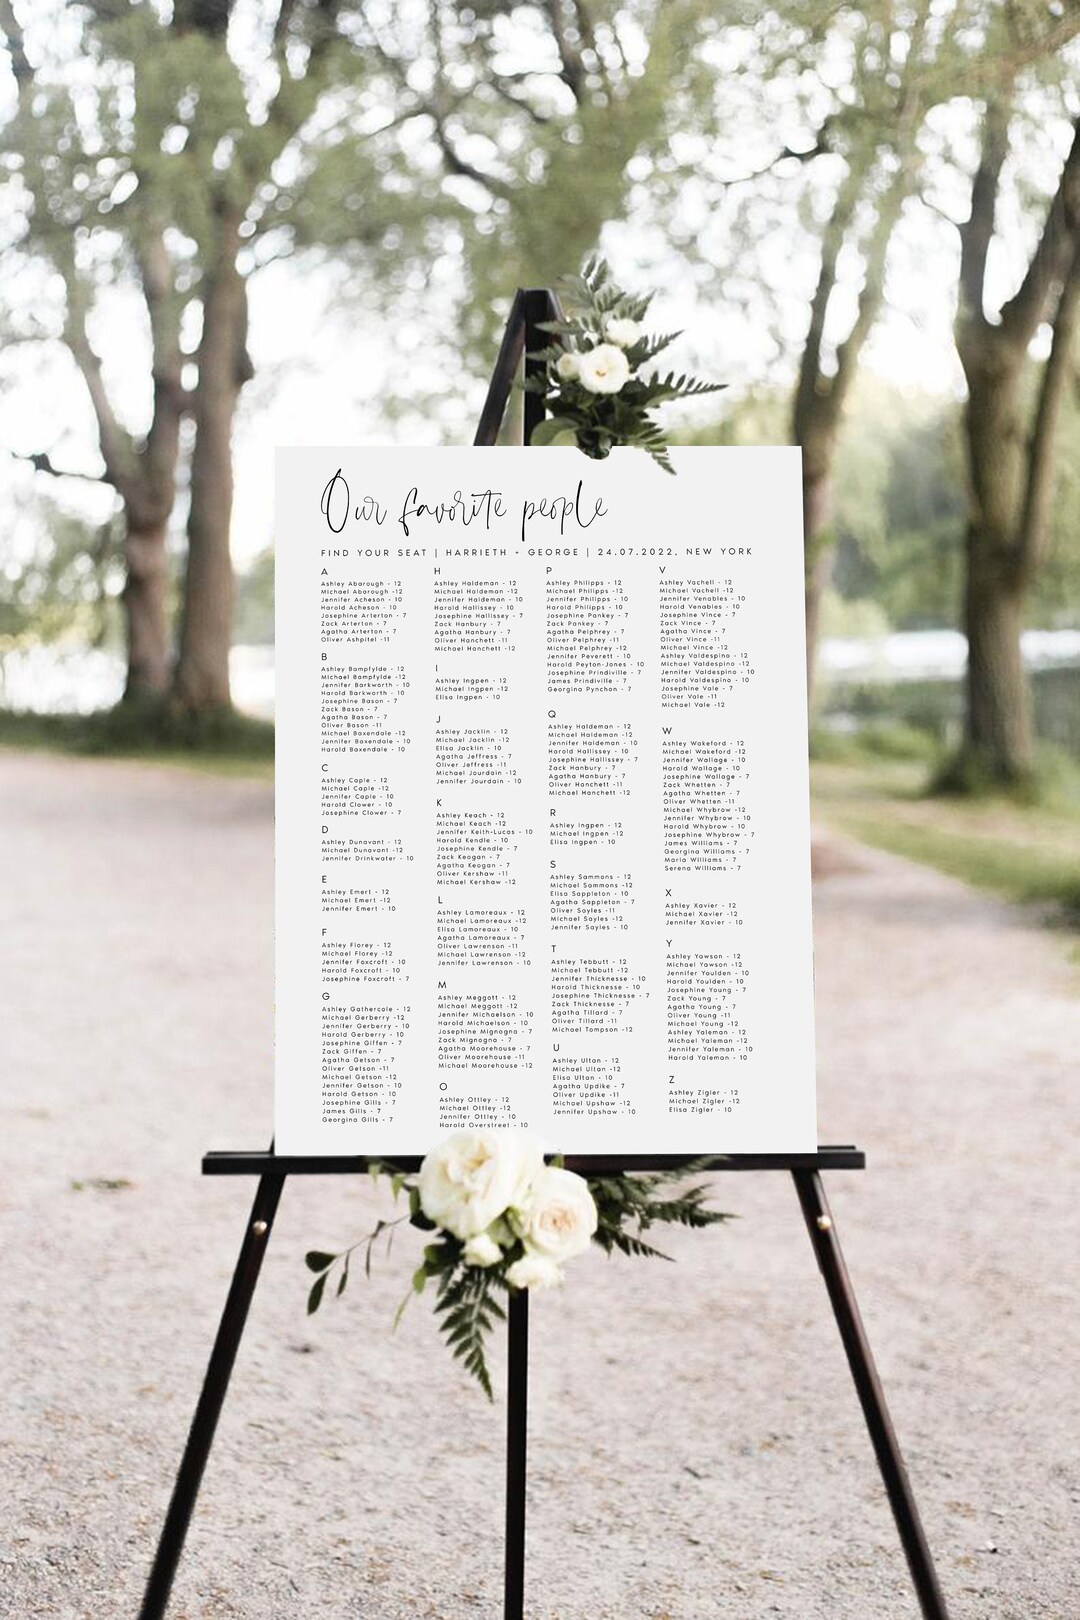 Our favorite people
FIND YOUR SEAT | HARRIETH + GEORGE | 24.07.2022, NEW YORK
A
Ashley Abarough - 12
Michael Abarough -12
Jennifer Acheson - 10
Harold Acheson - 10
Josephine Arterton - 7
Zack Arterton - 7
Agatha Arterton - 7
Oliver Ashpitel -11
B
Ashley Bampfylde - 12
Michael Bampfylde -12
Jennifer Barkworth - 10
Harold Barkworth - 10
Josephine Bason - 7
Zack Bason - 7
Agatha Bason - 7
Oliver Bason -11
Michael Baxendale -12
Jennifer Baxendale - 10
Harold Baxendale - 10
C
Ashley Caple - 12
Michael Caple -12
Jennifer Caple - 10
Harold Clower - 10
Josephine Clower - 7
D
Ashley Dunavant - 12
Michael Dunavant -12
Jennifer Drinkwater - 10
E
Ashley Emert - 12
Michael Emert -12
Jennifer Emert - 10
F
Ashley Florey - 12
Michael Florey -12
Jennifer Foxcroft - 10
Harold Foxcroft - 10
Josephine Foxcroft - 7
G
Ashley Gathercole - 12
Michael Gerberry -12
Jennifer Gerberry - 10
Harold Gerberry - 10
Josephine Giffen - 7
Zack Giffen - 7
Agatha Getson - 7
Oliver Getson -11
Michael Getson -12
Jennifer Getson - 10
Harold Getson - 10
Josephine Gills - 7
James Gills - 7
Georgina Gills - 7
H
Ashley Haldeman - 12
Michael Haldeman -12
Jennifer Haldeman - 10
Harold Hallissey - 10
Josephine Hallissey - 7
Zack Hanbury - 7
Agatha Hanbury - 7
Oliver Hanchett -11
Michael Hanchett -12
I
Ashley Ingpen - 12
Michael Ingpen -12
Elisa Ingpen - 10
J
Ashley Jacklin - 12
Michael Jacklin -12
Elisa Jacklin - 10
Agatha Jeffress - 7
Oliver Jeffress -11
Michael Jourdain -12
Jennifer Jourdain - 10
K
Ashley Keach - 12
Michael Keach -12
Jennifer Keith-Lucas - 10
Harold Kendle - 10
Josephine Kendle - 7
Zack Keogan - 7
Agatha Keogan - 7
Oliver Kershaw -11
Michael Kershaw -12
L
Ashley Lamoreaux - 12
Michael Lamoreaux -12
Elisa Lamoreaux - 10
Agatha Lamoreaux - 7
Oliver Lawrenson -11
Michael Lawrenson -12
Jennifer Lawrenson - 10
M
Ashley Meggott - 12
Michael Meggott -12
Jennifer Michaelson - 10
Harold Michaelson - 10
Josephine Mignogna - 7
Zack Mignogna - 7
Agatha Moorehouse - 7
Oliver Moorehouse -11
Michael Moorehouse -12
O
Ashley Ottley - 12
Michael Ottley -12
Jennifer Ottley - 10
Harold Overstreet - 10
P
Ashley Philipps - 12
Michael Philipps -12
Jennifer Philipps - 10
Harold Philipps - 10
Josephine Pankey - 7
Zack Pankey - 7
Agatha Pelphrey - 7
Oliver Pelphrey -11
Michael Pelphrey -12
Jennifer Peverett - 10
Harold Peyton-Jones - 10
Josephine Prindiville - 7
James Prindiville - 7
Georgina Pynchon - 7
Q
Ashley Haldeman - 12
Michael Haldeman -12
Jennifer Haldeman - 10
Harold Hallissey - 10
Josephine Hallissey - 7
Zack Hanbury - 7
Agatha Hanbury - 7
Oliver Hanchett -11
Michael Hanchett -12
R
Ashley Ingpen - 12
Michael Ingpen -12
Elisa Ingpen - 10
S
Ashley Sammons - 12
Michael Sammons -12
Elisa Sappleton - 10
Agatha Sappleton - 7
Oliver Sayles -11
Michael Sayles -12
Jennifer Sayles - 10
T
Ashley Tebbutt - 12
Michael Tebbutt -12
Jennifer Thicknesse - 10
Harold Thicknesse - 10
Josephine Thicknesse - 7
Zack Thicknesse - 7
Agatha Tillard - 7
Oliver Tillard -11
Michael Tompson -12
U
Ashley Ultan - 12
Michael Ultan -12
Elisa Ultan - 10
Agatha Updike - 7
Oliver Updike -11
Michael Upshaw -12
Jennifer Upshaw - 10
V
Ashley Vachell - 12
Michael Vachell -12
Jennifer Venables - 10
Harold Venables - 10
Josephine Vince - 7
Zack Vince - 7
Agatha Vince - 7
Oliver Vince -11
Michael Vince -12
Ashley Valdespino - 12
Michael Valdespino -12
Jennifer Valdespino - 10
Harold Valdespino - 10
Josephine Vale - 7
Oliver Vale -11
Michael Vale -12
W
Ashley Wakeford - 12
Michael Wakeford -12
Jennifer Wallage - 10
Harold Wallage - 10
Josephine Wallage - 7
Zack Whetten - 7
Agatha Whetten - 7
Oliver Whetten -11
Michael Whybrow -12
Jennifer Whybrow - 10
Harold Whybrow - 10
Josephine Whybrow - 7
James Williams - 7
Georgina Williams - 7
Maria Williams - 7
Serena Williams - 7
X
Ashley Xavier - 12
Michael Xavier -12
Jennifer Xavier - 10
Y
Ashley Yawson - 12
Michael Yawson -12
Jennifer Youlden - 10
Harold Youlden - 10
Josephine Young - 7
Zack Young - 7
Agatha Young - 7
Oliver Young -11
Michael Young -12
Ashley Yaleman - 12
Michael Yaleman -12
Jennifer Yaleman - 10
Harold Yaleman - 10
Z
Ashley Zigler - 12
Michael Zigler -12
Elisa Zigler - 10